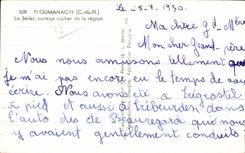 508 PLOUMANACH (C.-du-N.)
Le Bélier, curieux rocher de la région
Le 25.7.1950.
Ma chère Gd Mère
Mon cher Grand-père
Nous nous amusons tellement que
je n'ai pas encore eu le temps de vous
écrire. Nous avons été à Trégastel
à pied et aussi à Trébeurden dans
l'auto des de Beauregard qui nous
y avaient gentilment conduits.